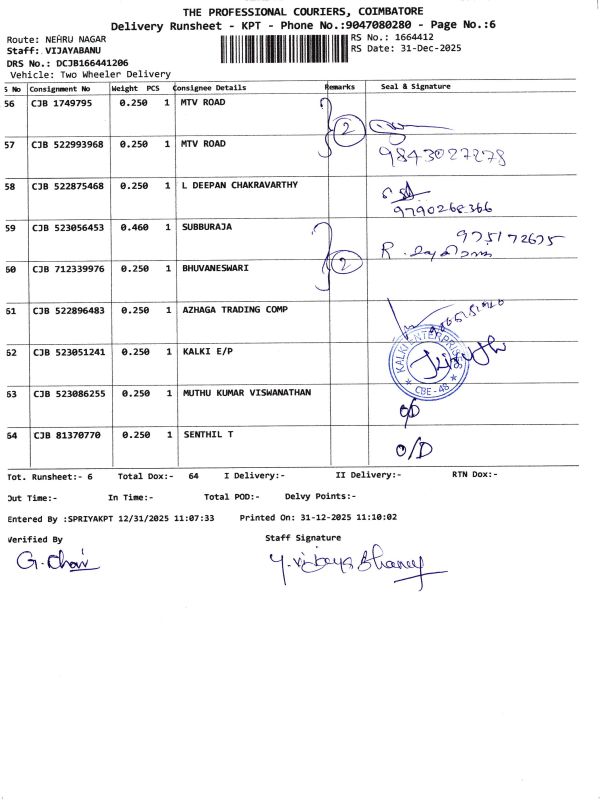 THE PROFESSIONAL COURIERS, COIMBATORE
Delivery Runsheet - KPT - Phone No.:9047080280 - Page No.:6
Route: NEHRU NAGAR
RS No.: 1664412
Staff: VIJAYABANU
RS Date: 31-Dec-2025
DRS No.: DCJB166441206
Vehicle: Two Wheeler Delivery
S No Consignment No Weight PCS Consignee Details Remarks Seal & Signature
56 CJB 1749795 0.250 1 MTV ROAD 2
57 CJB 522993968 0.250 1 MTV ROAD 9843027278
58 CJB 522875468 0.250 1 L DEEPAN CHAKRAVARTHY
9790268366
59 CJB 523056453 0.460 1 SUBBURAJA 975172675
60 CJB 712339976 0.250 1 BHUVANESWARI 2 R.
61 CJB 522896483 0.250 1 AZHAGA TRADING COMP
62 CJB 523051241 0.250 1 KALKI E/P KALKI ENTERPRISES ★ CBE-48 ★
63 CJB 523086255 0.250 1 MUTHU KUMAR VISWANATHAN O/D
64 CJB 81370770 0.250 1 SENTHIL T O/D
Tot. Runsheet:- 6 Total Dox:- 64 I Delivery:- II Delivery:- RTN Dox:-
Out Time:- In Time:- Total POD:- Delvy Points:-
Entered By :SPRIYAKPT 12/31/2025 11:07:33 Printed On: 31-12-2025 11:10:02
Verified By Staff Signature